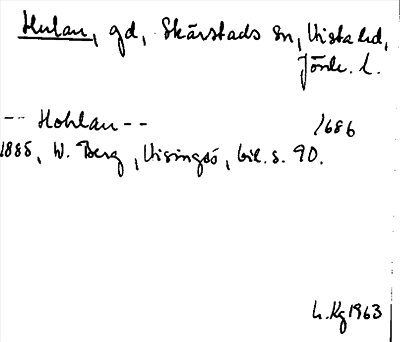 Hulan, gd, Skärstads sn, Vista hd,
Jönk. l.
-- Hohlan -- 1686
1885, W. Berg, Visingsö, bil. s. 90.
L. Kg 1963